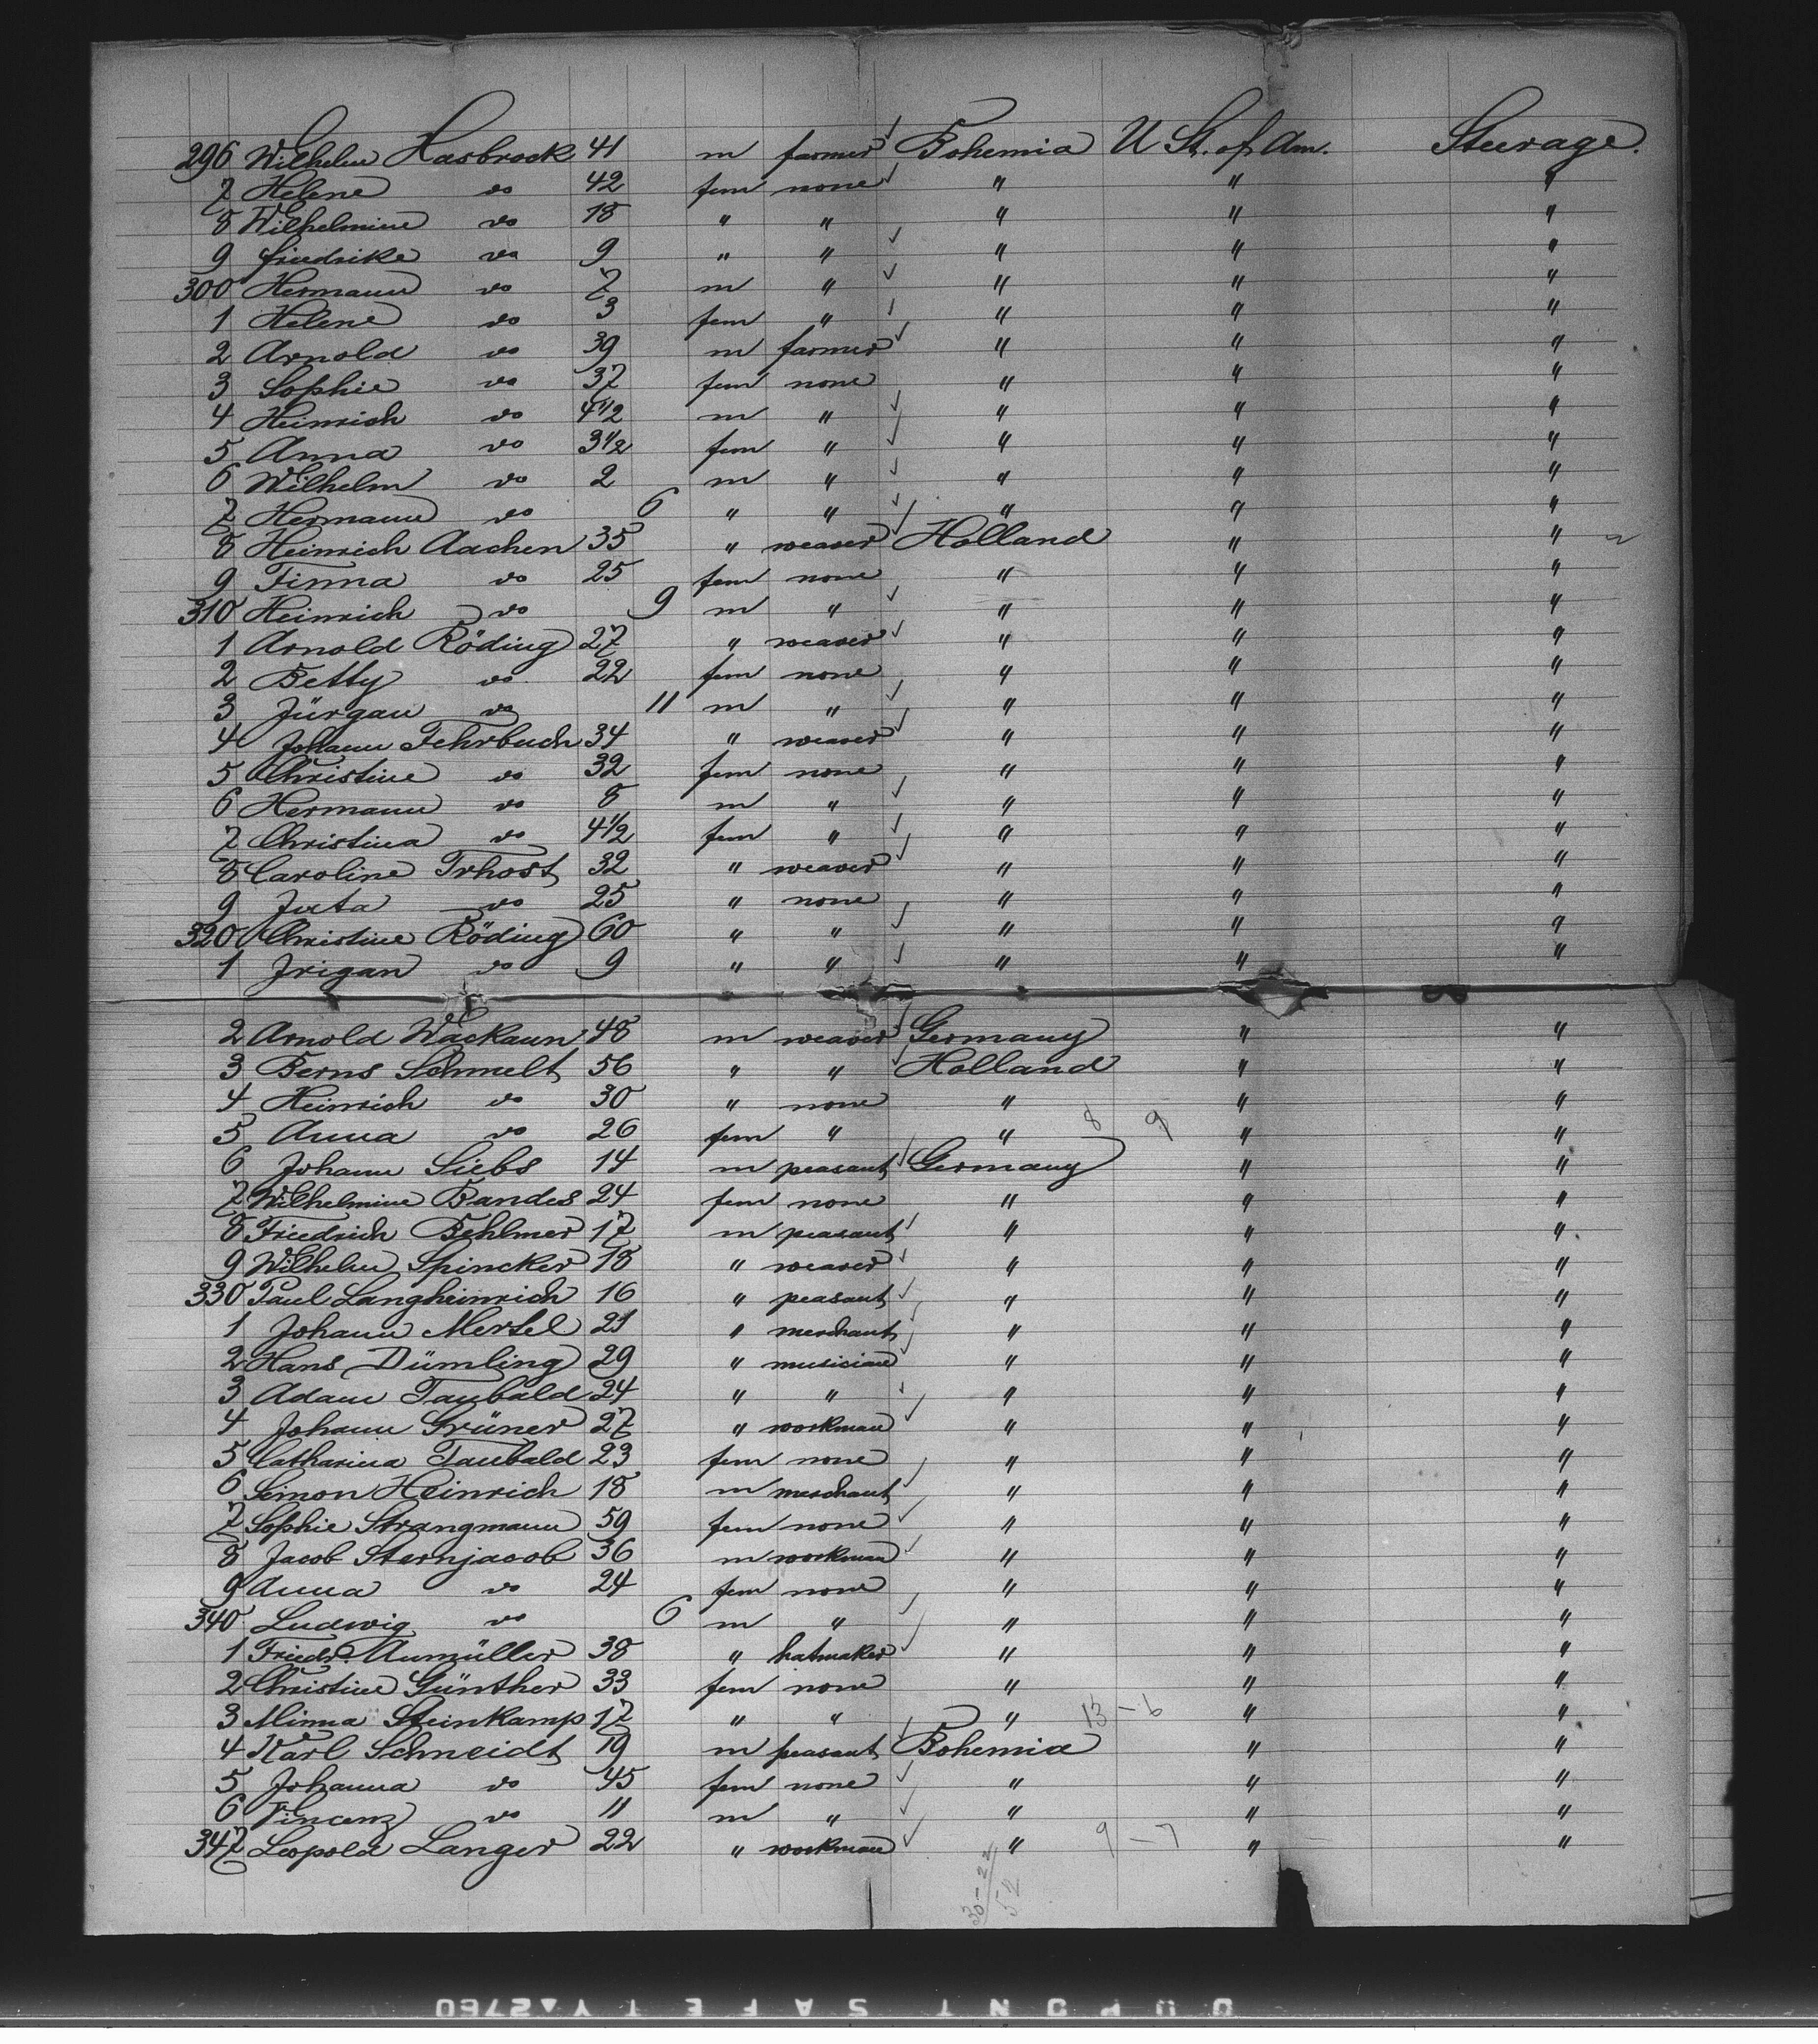 296 Wilhelm Hasbrock 41 m farmer Bohemia U St. of Am. Steerage.
7 Helene do 42 fem none " " "
8 Wilhelmine do 18 " " " " "
9 Friedrike do 9 " " " " "
300 Hermann do 7 m " " " "
1 Helene do 3 fem " " " "
2 Arnold do 39 m farmer " " "
3 Sophie do 37 fem none " " "
4 Heinrich do 4 1/2 m " " " "
5 Anna do 3 1/2 fem " " " "
6 Wilhelm do 2 m " " " "
7 Hermann do 6 " " " " "
8 Heinrich Aachen 35 " weaver Holland " "
9 Finna do 25 fem none " " "
310 Heinrich do 9 m " " " "
1 Arnold Röding 27 " weaver " " "
2 Betty do 22 fem none " " "
3 Jürgan do 11 m " " " "
4 Johann Fehrbuch 34 " weaver " " "
5 Christine do 32 fem none " " "
6 Hermann do 8 m " " " "
7 Christina do 4 1/2 fem " " " "
8 Caroline Trhost 32 " weaver " " "
9 Juta do 25 " none " " "
320 Christine Röding 60 " " " " "
1 Jrigan do 9 " " " " "
2 Arnold Wackaun 48 m weaver Germany " "
3 Berns Schmelt 56 " " Holland " "
4 Heinrich do 30 " none " " "
5 Anna do 26 fem " " 8 9 " "
6 Johann Siebs 14 m peasant Germany " "
7 Wilhelmine Bandes 24 fem none " " "
8 Friedrich Behlmer 17 m peasant " " "
9 Wilhelm Spincker 18 " weaver " " "
330 Paul Langheinrich 16 " peasant " " "
1 Johann Mertel 21 " merchant " " "
2 Hans Dümling 29 " musician " " "
3 Adam Taubald 24 " " " " "
4 Johann Grüner 27 " workman " " "
5 Catharina Taubald 23 fem none " " "
6 Simon Heinrich 18 m merchant " " "
7 Sophie Strangmann 59 fem none " " "
8 Jacob Sternjacob 36 m workman " " "
9 Anna do 24 fem none " " "
340 Ludwig do 6 m " " " "
1 Friedr. Aumüller 38 " hatmaker " " "
2 Christine Günther 33 fem none " " "
3 Minna Steinkamp 17 " " " 13-6 " "
4 Karl Schneidt 19 m peasant Bohemia " "
5 Johanna do 45 fem none " " "
6 Vincenz do 11 m " " " "
347 Leopold Langer 22 " workman " 9-7 " "
30-22
52
DUPONT SAFETY▲2760